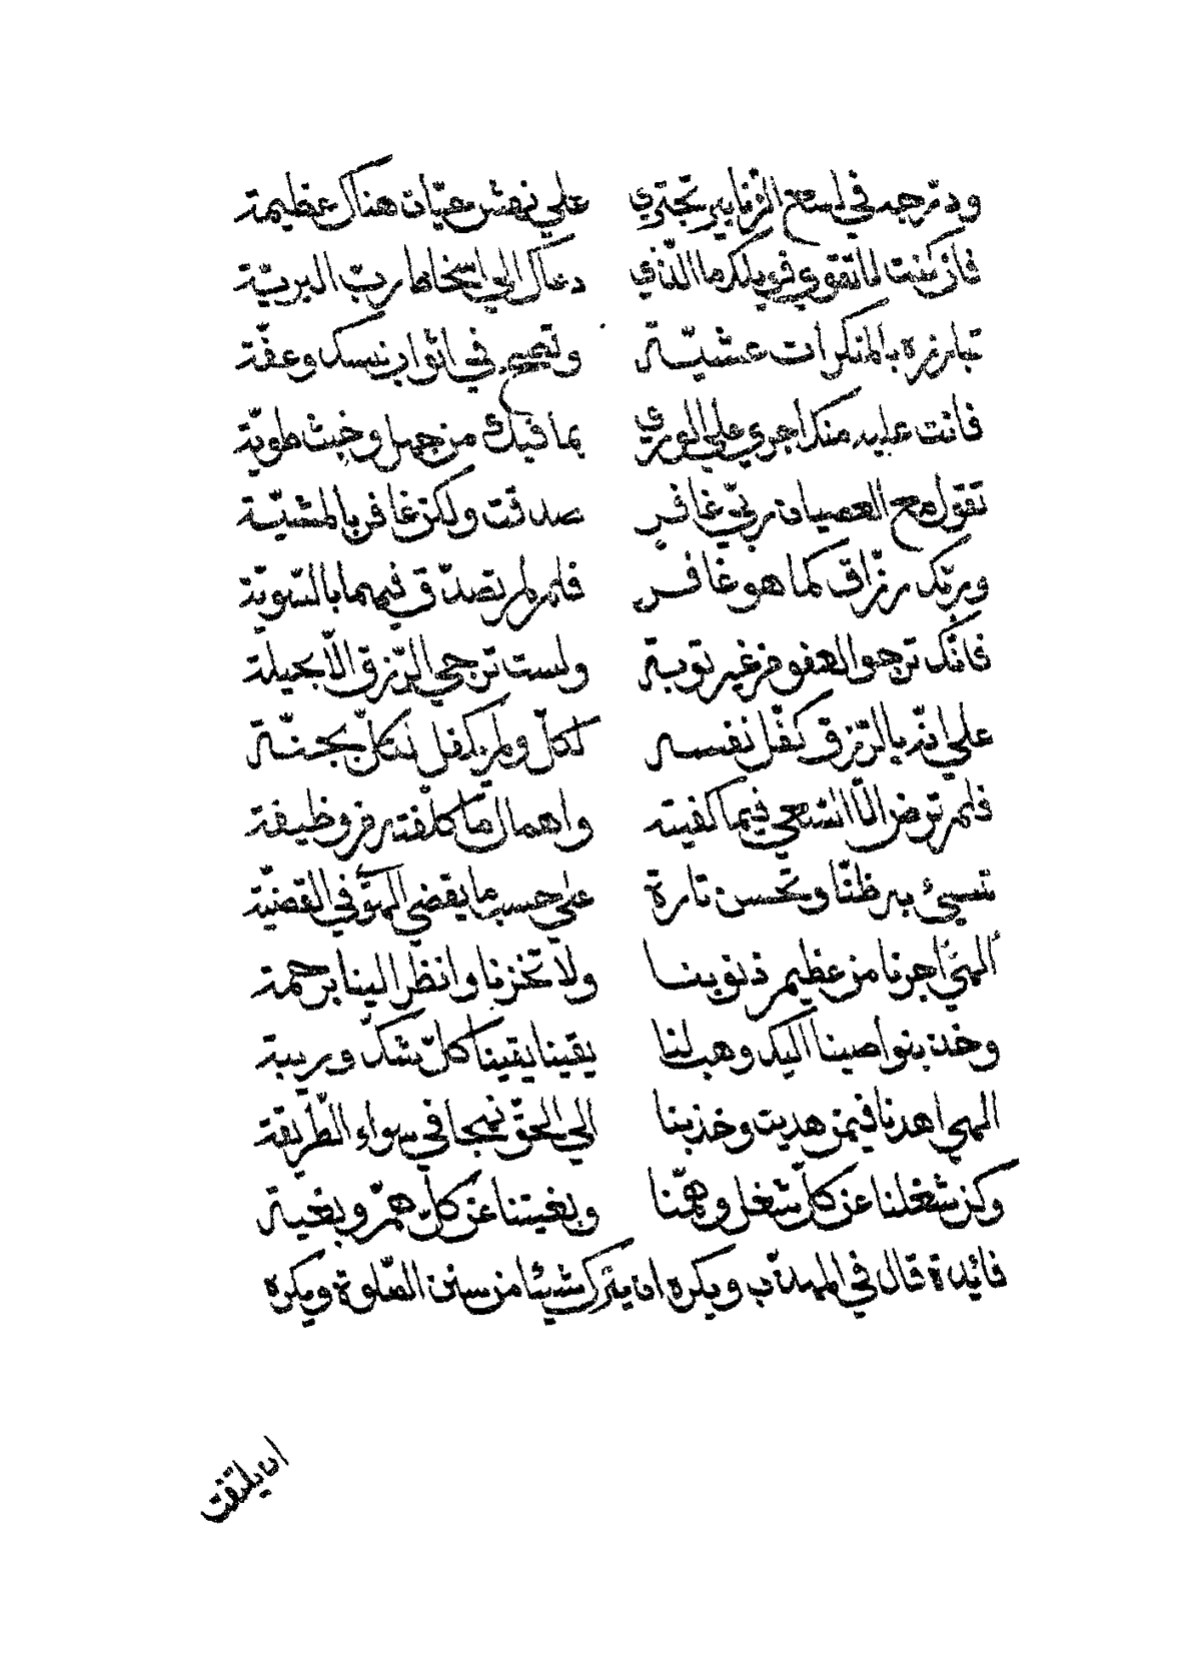 ودرجه في لسع الزنابير تجتري على نهش حيات هناك عظيمة
فان كنت لا تقوي فويلك ما الذي دعاك الي اسخاط ربّ البريّة
تبارزه بالمنكرات عشيّة وتصبح في اثواب نسك وعفّة
فانت عليه منك اجري علي الوري بما فيك من جهل وخبث طويّة
تقول مع العصيان ربّي غافر صدقت ولكن غافر بالمشيّة
وربّك رزّاق كما هو غافر فلم لم تصدّق فيهما بالسّويّة
فانّك ترجو العفو من غير توبة ولست ترجي الرّزق الّا بحيلة
علي انّه بالرّزق كفّل نفسه لكلّ ولم يكفل لكلّ بجنّة
فلم ترض الّا السّعي فيما كفيته واهمال ما كلّفته من وظيفة
تسيئ به ظنّا وتحسن تارة علي حسب ما يقضي الهوي في القضيّة
الهي اجرنا من عظيم ذنوبنا ولا تخزنا وانظر الينا برحمة
وخذ بنواصينا اليك وهب لنا يقينا يقينا كلّ شكّ وريبة
الهي اهدنا فيمن هديت وخذ بنا الي الحقّ نهجا في سواء الطّريقة
وكن شغلنا عن كلّ شغل وهمّنا وبغيتنا عن كلّ همّ وبغية
فائدة قال في المهذّب ويكره ان يترك شيئا من سنن الصّلوة ويكره
ان يلتفت